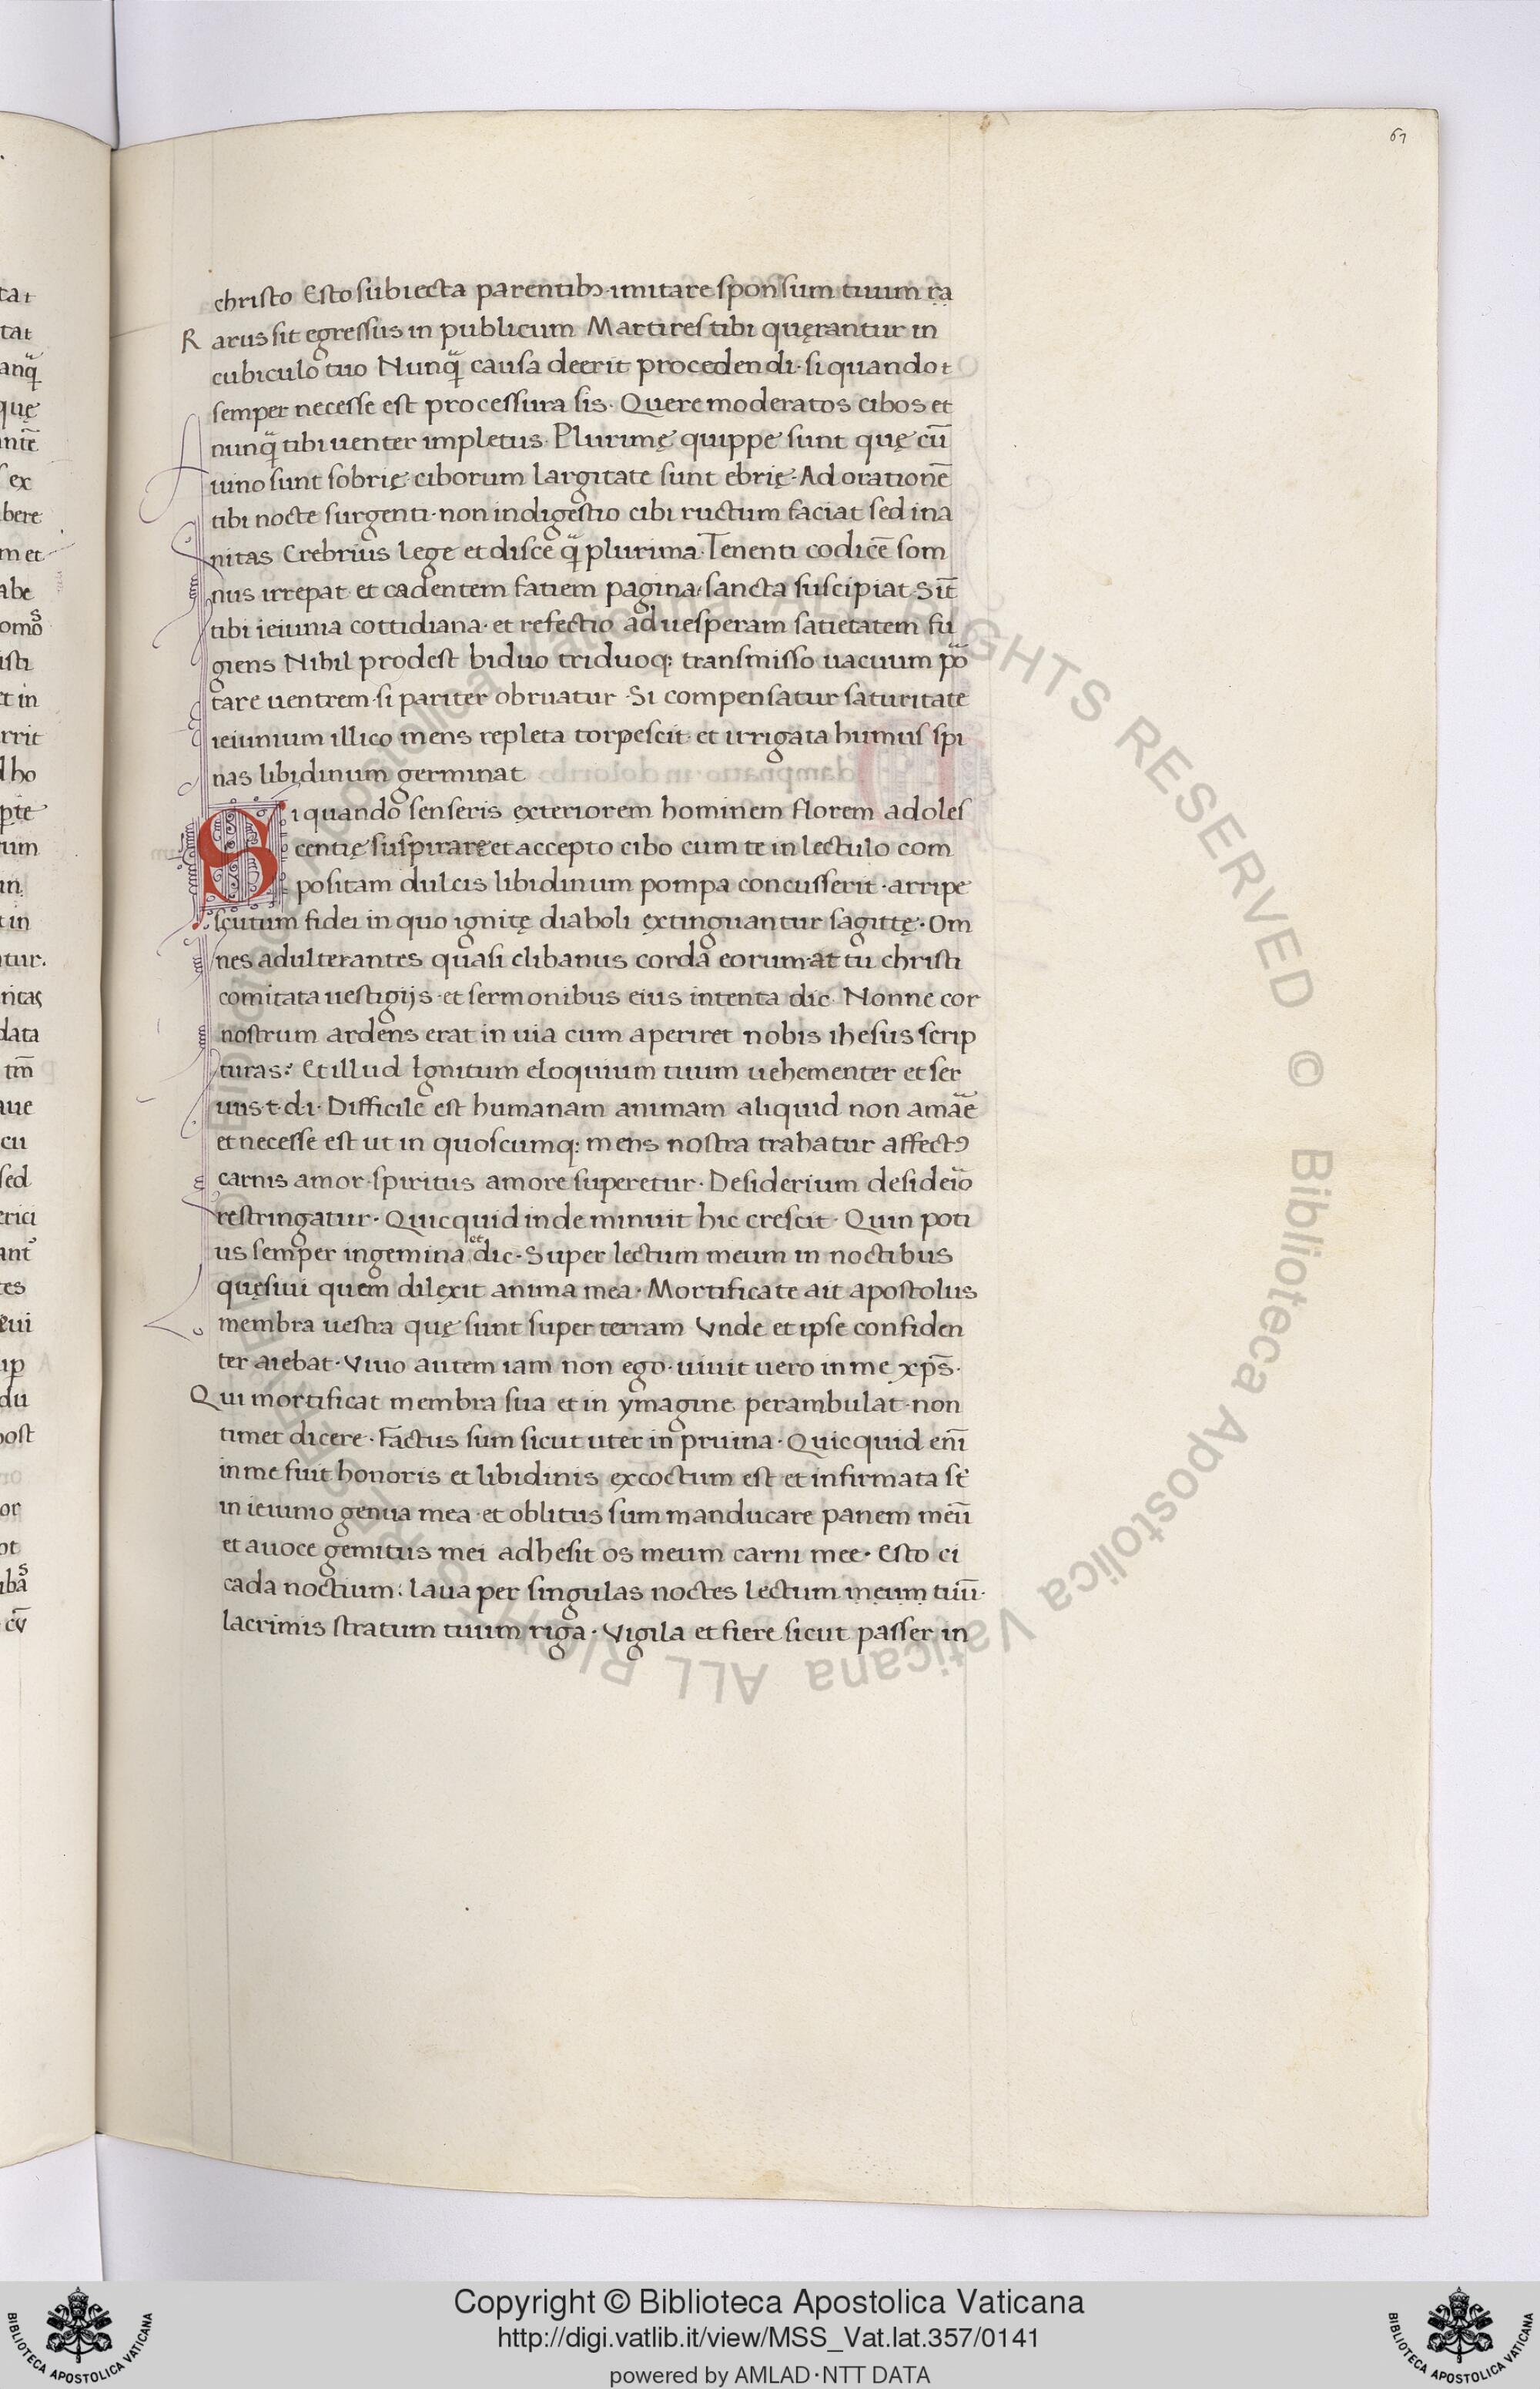 67
christo Esto subiecta parentibꝫ· imitare sponsum tuum ra
R arus sit egressus in publicum Martires tibi quęrantur in
cubiculo tuo Nunq̃ causa deerit procedendi· si quando t
semper necesse est processura sis· Quere moderatos cibos et
nunq̃ tibi uenter impletus· Plurimę quippe sunt quę cū
uino sunt sobrię ciborum largitate sunt ebrię· Ad orationē
tibi nocte surgenti· non indigestio cibi ructum faciat sed ina
nitas Crebrius lege et disce q̃ plurima· Tenenti codicē som
nus irrepat et cadentem fatiem pagina sancta suscipiat· Sīt
tibi ieiunia cottidiana· et refectio ad uesperam satietatem fu
giens Nihil prodest biduo triduoq: transmisso uacuum põ
tare uentrem· si pariter obruatur· Si compensatur saturitate
ieiunium illico mens repleta torpescit· et irrigata humus spi
nas libidinum germinat
Si quando senseris exteriorem hominem florem adoles
centię suspirare et accepto cibo cum te in lectulo com
positam dulcis libidinum pompa concusserit· arripe
scutum fidei in quo ignitę diaboli extinguantur sagittę· Om
nes adulterantes quasi clibanus corda eorum· at tu christi
comitata uestigijs· et sermonibus eius intenta dic· Nonne cor
nostrum ardens erat in uia cum aperiret nobis ihesus scrip
turas? Et illud Ignitum eloquium tuum uehementer et ser
uus·t·d·i· Difficile est humanam animam aliquid non amãe
et necesse est ut in quoscumq: mens nostra trahatur affectꝰ
carnis amor· spiritus amore superetur· Desiderium desideĩo
restringatur· Quicquid inde minuit hic crescit· Quin poti
us semper ingemina et dic· Super lectum meum in noctibus
quęsiui quem dilexit anima mea· Mortificate ait apostolus
membra uestra quę sunt super terram Vnde et ipse confiden
ter aiebat· Viuo autem iam non ego· uiuit uero in me xp̄s·
Qui mortificat membra sua et in ymagine perambulat· non
timet dicere· Factus sum sicut uter in pruina· Quicquid enī
in me fuit honoris et libidinis excoctum est et infirmata st̄
in ieiunio genua mea· et oblitus sum manducare panem meū
et a uoce gemitus mei adhesit os meum carni mee· Esto ci
cada noctium: laua per singulas noctes lectum meum tuū·
lacrimis stratum tuum riga· Vigila et fiere sicut passer in
Copyright © Biblioteca Apostolica Vaticana
http://digi.vatlib.it/view/MSS_Vat.lat.357/0141
powered by AMLAD·NTT DATA
BIBLIOTECA APOSTOLICA VATICANA
BIBLIOTECA APOSTOLICA VATICANA